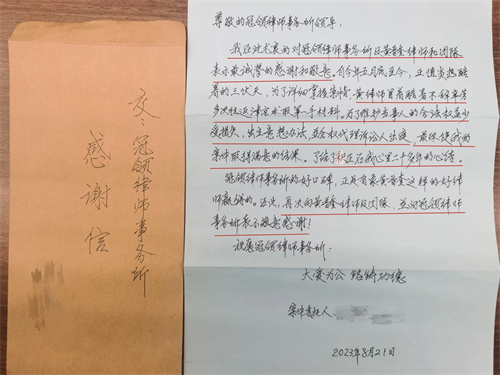 交：冠领律师事务所
感谢信
尊敬的冠领律师事务所领导：
我在此尤衷的对冠领律师事务所及黄普查律师和团队
表示最诚挚的感谢和敬意。自今年五月底至今，正值炎热酷
暑的三伏天，为了详细掌握案情，黄律师冒着酷暑不辞辛苦
多次往返津京
取第一手材料。为了维护当事人的合法权益少
受损失，出主意想办法，并全权代理诉讼人出庭，最终使我的
案件取得满意的结果。了结了积压在我心里二十多年的心结。
冠领律师事务所的好口碑，正是有象黄普查这样的好律
师赢得的。在此，再次向黄普查律师及团队，并向冠领律师
事务所表示敬意感谢！
祝愿冠领律师事务所：
大爱为公 锦锈功德
案件委托人
2023年8月21日